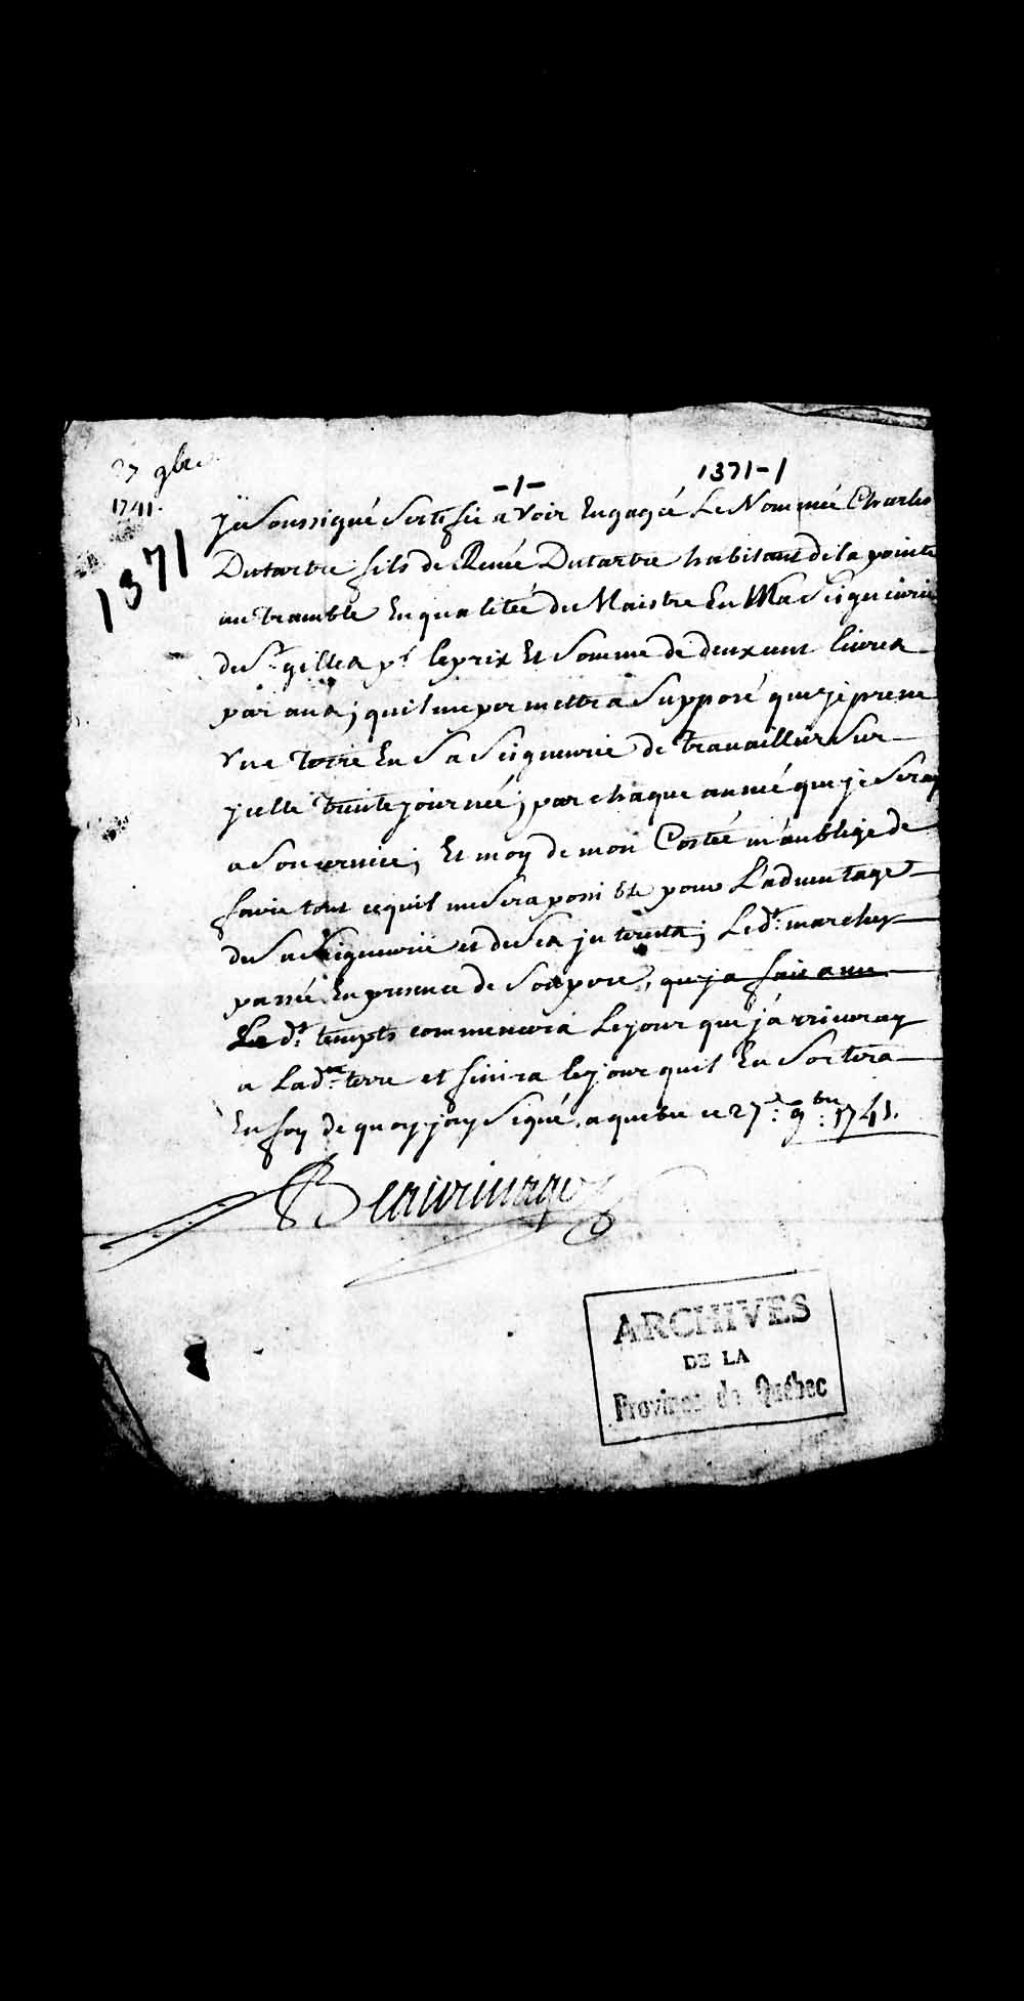 27 9bre
1741.
1371
-1-
1371-1
je Soussigné Sertifie avoir Engagé Le Nommé Charles
Dutartre fils de Renée Dutartre habitant de la pointe
au tramble En qualitée de Maistre En Ma Seigneurie
de St gilles pr le prix Et Somme de deux cent livres
par ans; quil me permettra Supposé que je prene
Une terre En Sa Seigneurie de travailler Sur
jcelle trente journée; par chaque année que je Seray
a Son cervice; Et moy de mon Costée m'aublige de
faire tout ce quil me Sera possible pour L'adventage
de Sa Seigneurie et de Ses jnterests; Le dt. marchez
passé En presence de Son pere, que ja fair avec
Le dt. tempts commencera Le jour que j'arriveray
a Lade. terre et finira le jour quil En Sortira
En foy de quoy j'ay Signé a quebec ce 27e. 9bre. 1741.
Beaurivage
ARCHIVES
DE LA
Province de Québec